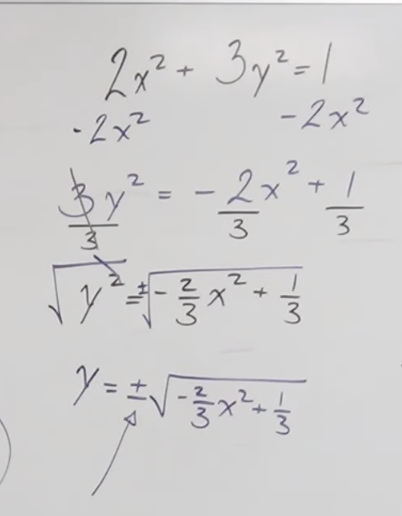 2x² + 3y² = 1
-2x² -2x²
3y²/3 = -2x²/3 + 1/3
√y² = ±√(-2/3 x² + 1/3)
y = ±√(-2/3 x² + 1/3)